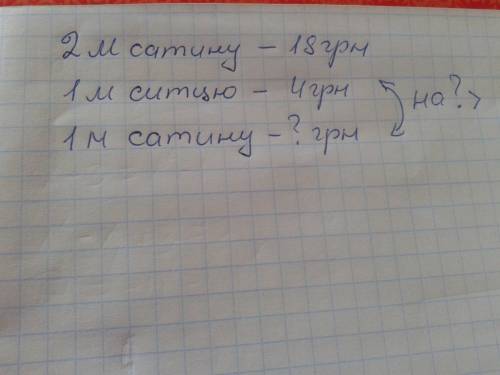 2 м сатину – 18 грн
1 м ситцю – 4 грн
на ? >
1 м сатину – ? грн